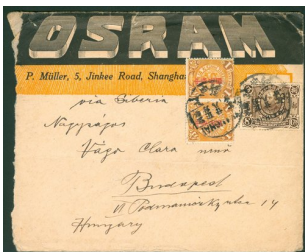 OSRAM
P. Müller, 5, Jinkee Road, Shangha
via Siberia
Nagyságos
Vágó Clara
Budapest
VI 14
Hungary